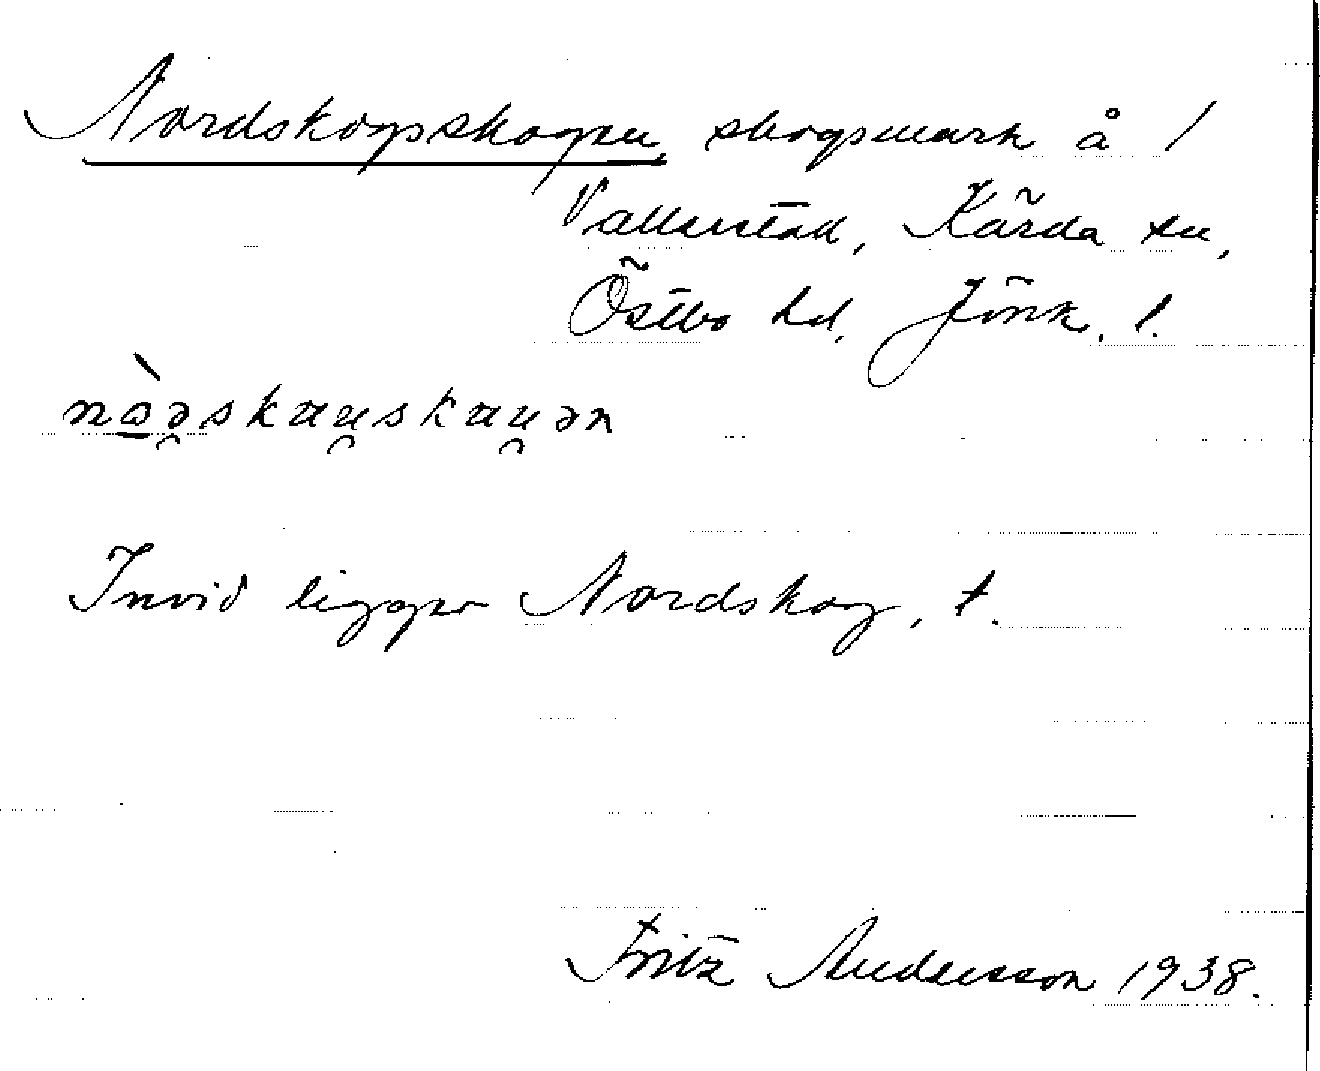 Nordskogskogen, skogsmark å /
Vallerstad, Kärda sn,
Östbo hd, Jönk. l.
nò̱ə̯skau̯skau̯ən
Invid ligger Nordskog, t.
Fritz Andersson 1938.